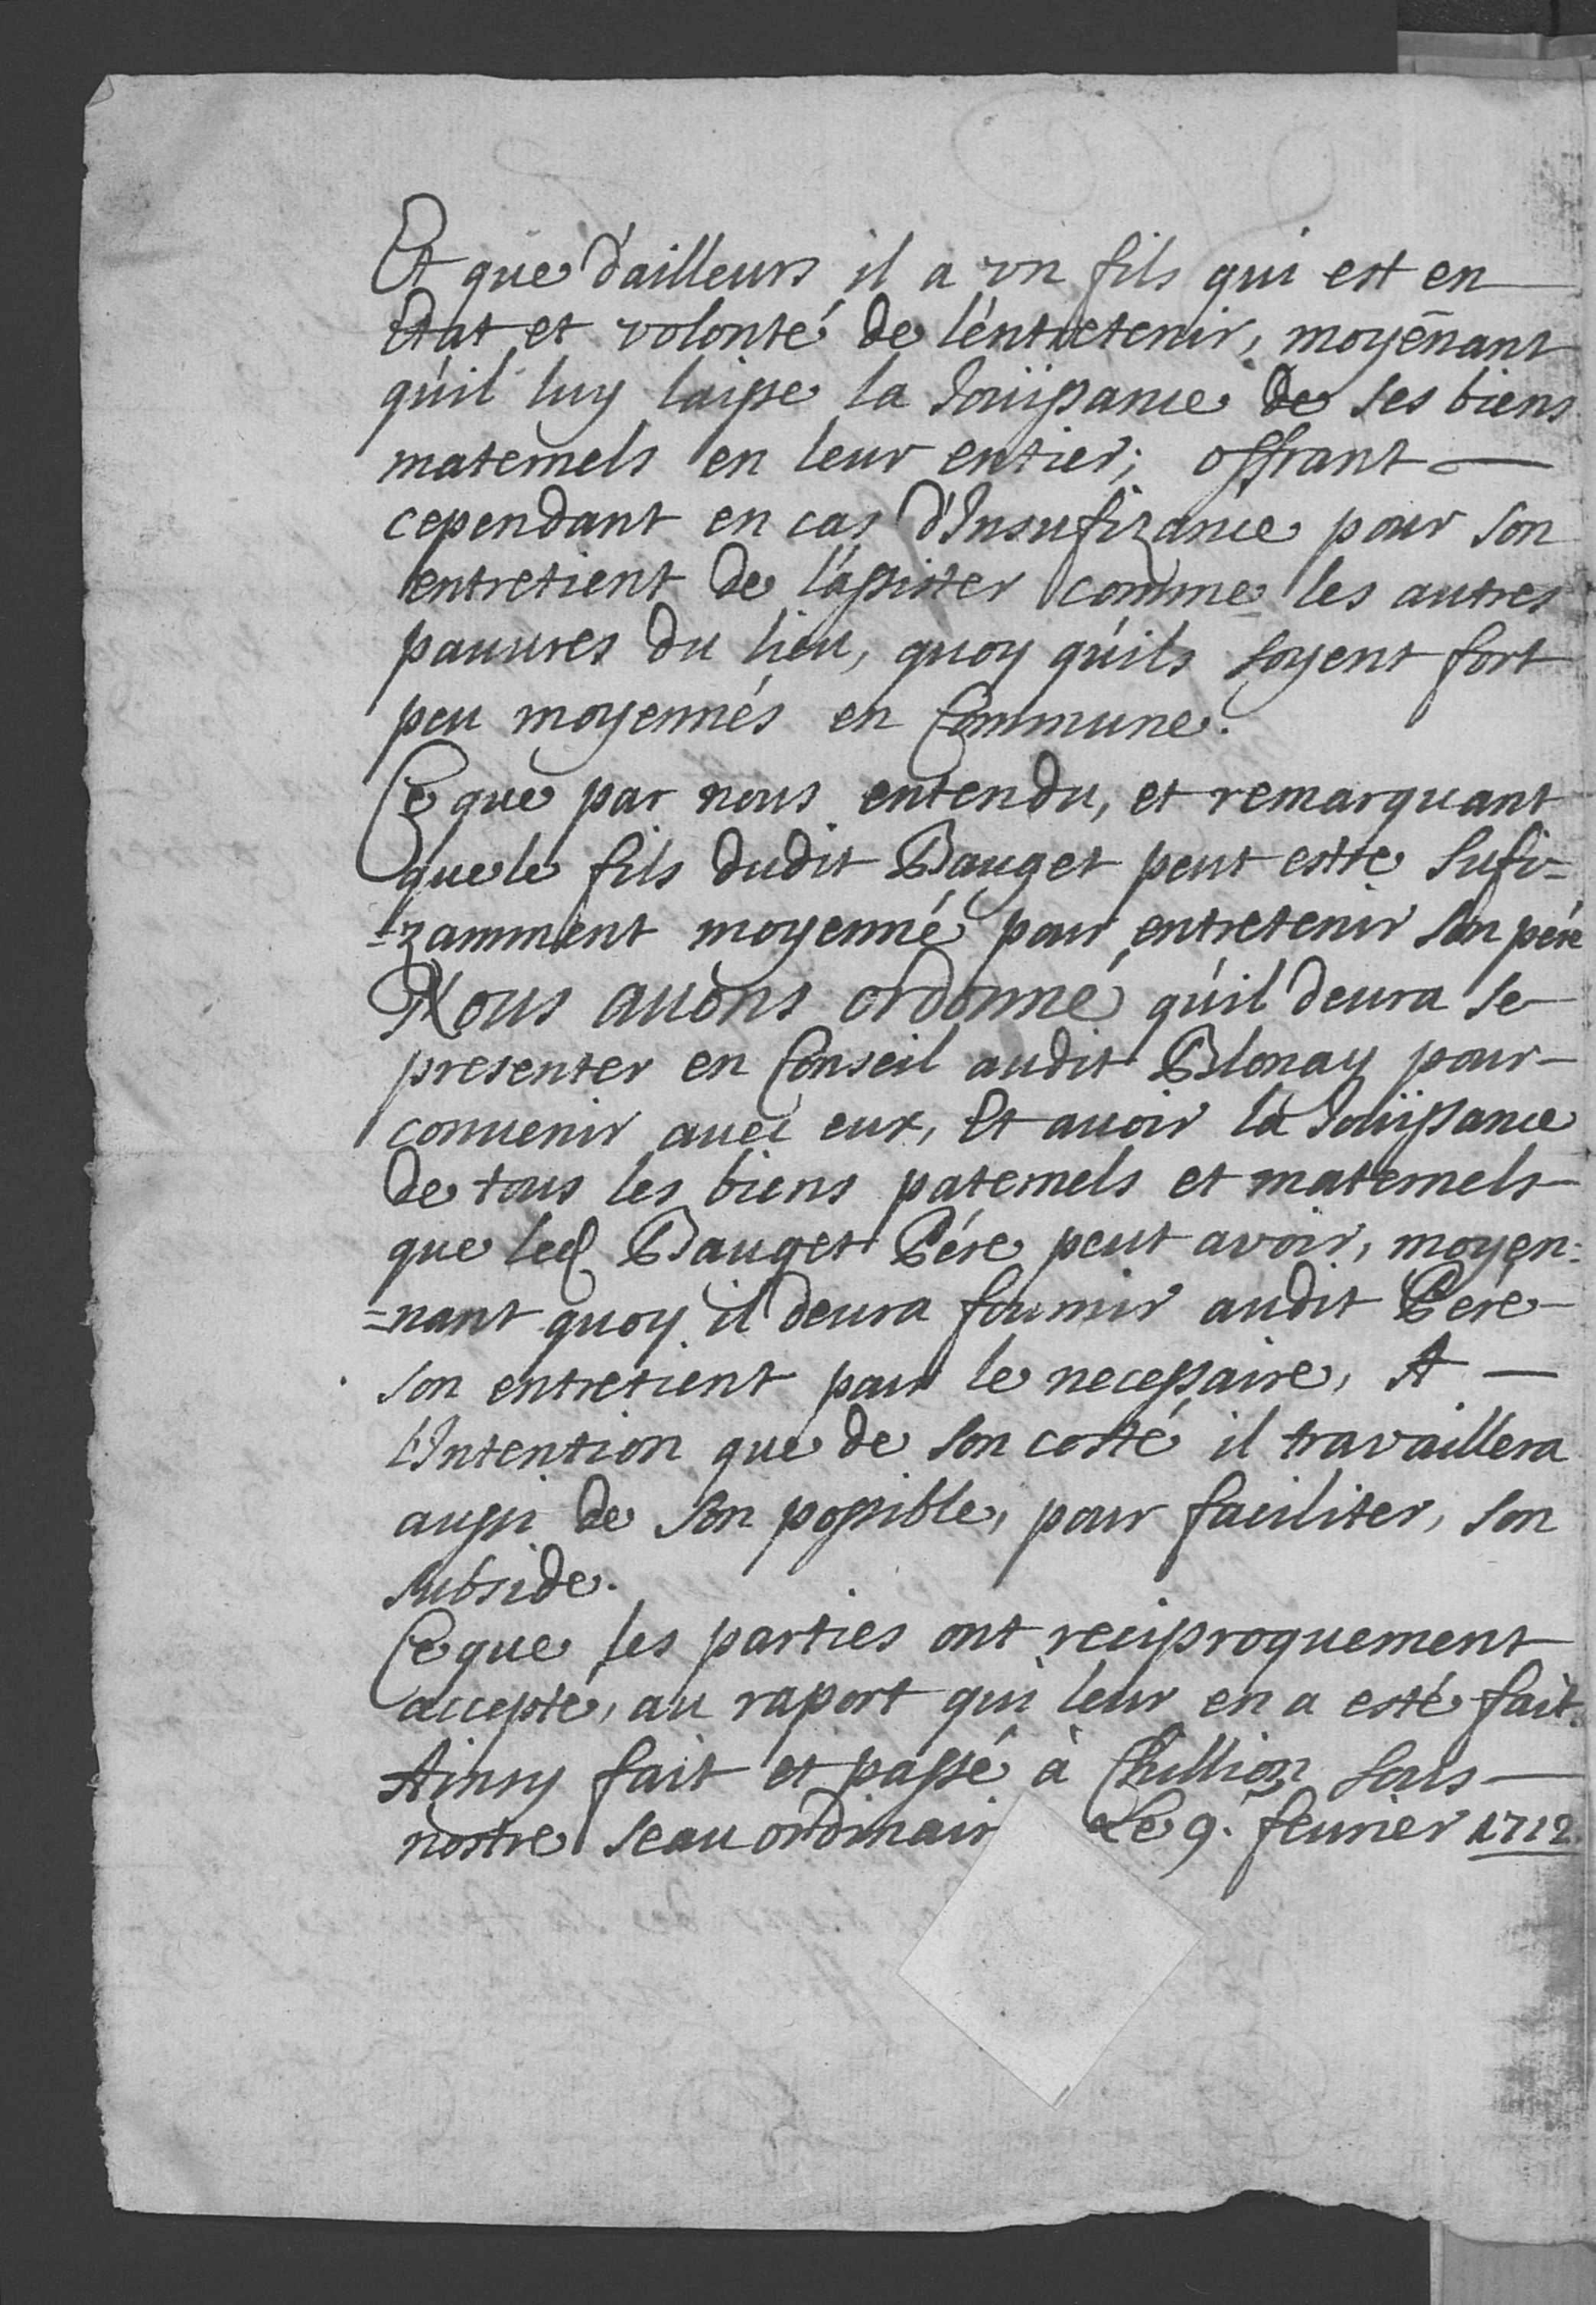 Et que d'ailleurs il a vn fils qui est en
Etat et volonté de l'éntretenir, moyēnant
qu'il luy laisse la Joüissance de ses biens
maternels en leur entier; offrant
cependant en cas d'Insufizance pour son
entretient de l'assister comme les autres
pauures du lieu, quoy qu'ils soyent fort
peu moyennés en Commune.
Ce que par nous entendu, et remarquant
que le fils dudit Bauget peut estre sufi-
-zamment moyenné pour entretenir son pére
Nous auons ordonné qu'il deura se
presenter en Conseil audit Blonay pour
conuenir auec eux, Et auoir la Joüissance
de tous les biens paternels et maternels
que led Bauget Pére peut avoir, moyen=
=nant quoy il deura fournir audit Pére
son entretient pour le necessaire, A
l'Intention que de son costé il travaillera
aussi de son possible, pour faciliter, son
subside.
Ce que les parties ont reciproquement
accepté, au raport qui leur en a esté fait.
Ainsy fait et passé à Chillion sous
nostre seau ordinair Le 9. feurier 1712